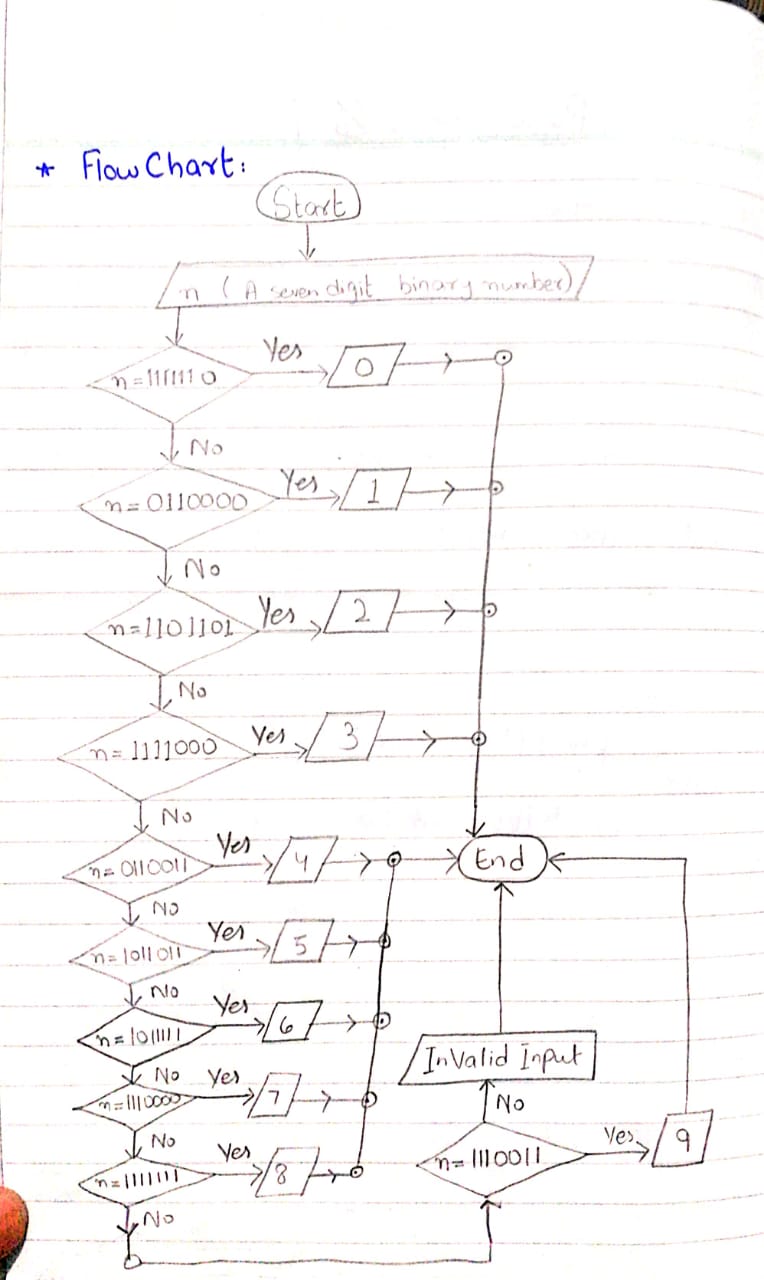 * Flow Chart:
Start
n (A seven digit binary number)
n=1111110
Yes
0
No
n=0110000
Yes
1
No
n=1101101
Yes
2
No
n=1111000
Yes
3
No
n=0110011
Yes
4
End
No
n=1011011
Yes
5
No
n=1011111
Yes
6
InValid Input
No
n=1110000
Yes
7
No
No
n=1111111
Yes
8
n=1110011
Yes
9
No